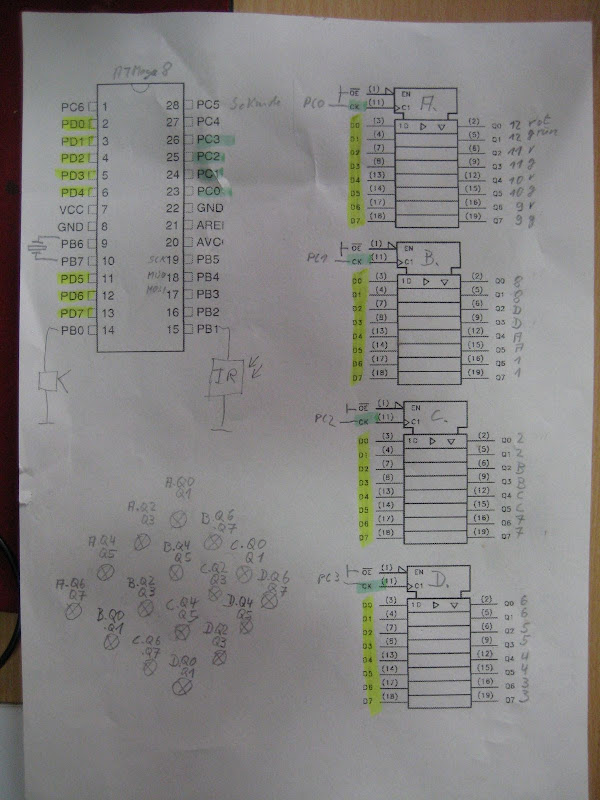 ATMega 8
PC6 1 28 PC5 Sekunde
PD0 2 27 PC4
PD1 3 26 PC3
PD2 4 25 PC2
PD3 5 24 PC1
PD4 6 23 PC0
VCC 7 22 GND
GND 8 21 AREF
PB6 9 20 AVC
PB7 10 SCK 19 PB5
PD5 11 MISO 18 PB4
PD6 12 MOSI 17 PB3
PD7 13 16 PB2
PB0 14 15 PB1
K
IR
OE (1) EN A.
PC0 CK (11) C1
D0 (3) 1D (2) Q0 12 rot
D1 (4) (5) Q1 12 grün
D2 (7) (6) Q2 11 r
D3 (8) (9) Q3 11 g
D4 (13) (12) Q4 10 r
D5 (14) (15) Q5 10 g
D6 (17) (16) Q6 9 r
D7 (18) (19) Q7 9 g
OE (1) EN B.
PC1 CK (11) C1
D0 (3) 1D (2) Q0 8
D1 (4) (5) Q1 8
D2 (7) (6) Q2 D
D3 (8) (9) Q3 D
D4 (13) (12) Q4 A
D5 (14) (15) Q5 A
D6 (17) (16) Q6 1
D7 (18) (19) Q7 1
OE (1) EN C.
PC2 CK (11) C1
D0 (3) 1D (2) Q0 2
D1 (4) (5) Q1 2
D2 (7) (6) Q2 B
D3 (8) (9) Q3 B
D4 (13) (12) Q4 C
D5 (14) (15) Q5 C
D6 (17) (16) Q6 7
D7 (18) (19) Q7 7
OE (1) EN D.
PC3 CK (11) C1
D0 (3) 1D (2) Q0 6
D1 (4) (5) Q1 6
D2 (7) (6) Q2 5
D3 (8) (9) Q3 5
D4 (13) (12) Q4 4
D5 (14) (15) Q5 4
D6 (17) (16) Q6 3
D7 (18) (19) Q7 3
A.Q0
Q1
A.Q2
Q3
B.Q6
.Q7
A.Q4
Q5
B.Q4
Q5
C.Q0
Q1
A.Q6
Q7
B.Q2
Q3
C.Q2
Q3
D.Q6
Q7
B.Q0
.Q1
C.Q4
Q5
D.Q4
Q5
C.Q6
.Q7
D.Q2
Q3
D.Q0
Q1